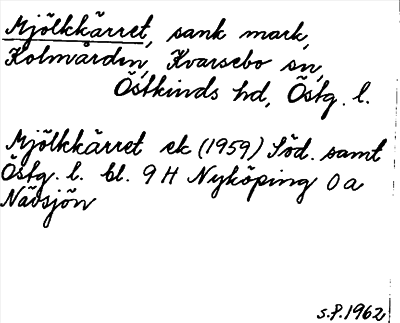 Mjölkkärret, sank mark,
Kolmården, Kvarsebo sn,
Östkinds hd, Östg. l.
Mjölkkärret ek (1959) Söd. samt
Östg. l. bl. 9 H Nyköping 0 a
Nävsjön
s.P.1962